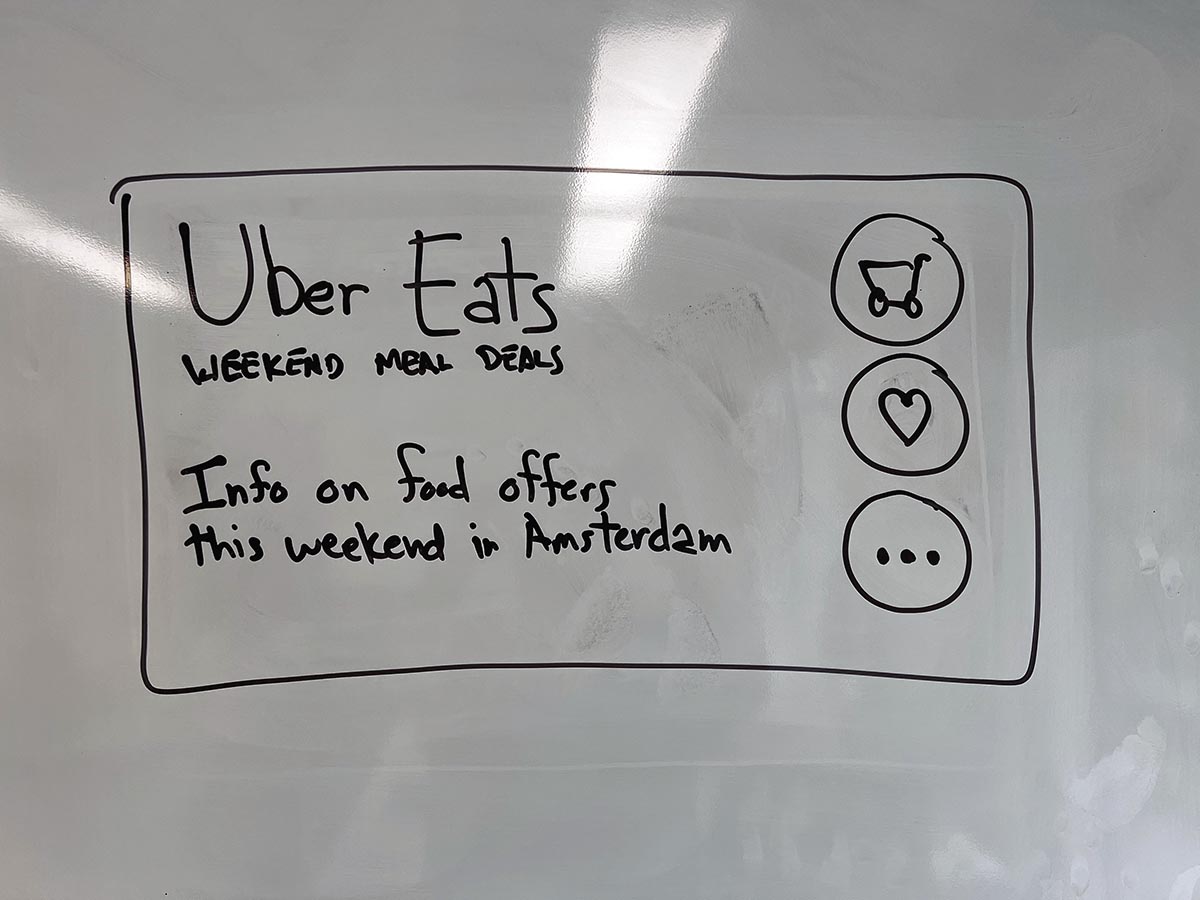 Uber Eats
WEEKEND MEAL DEALS
Info on food offers
this weekend in Amsterdam